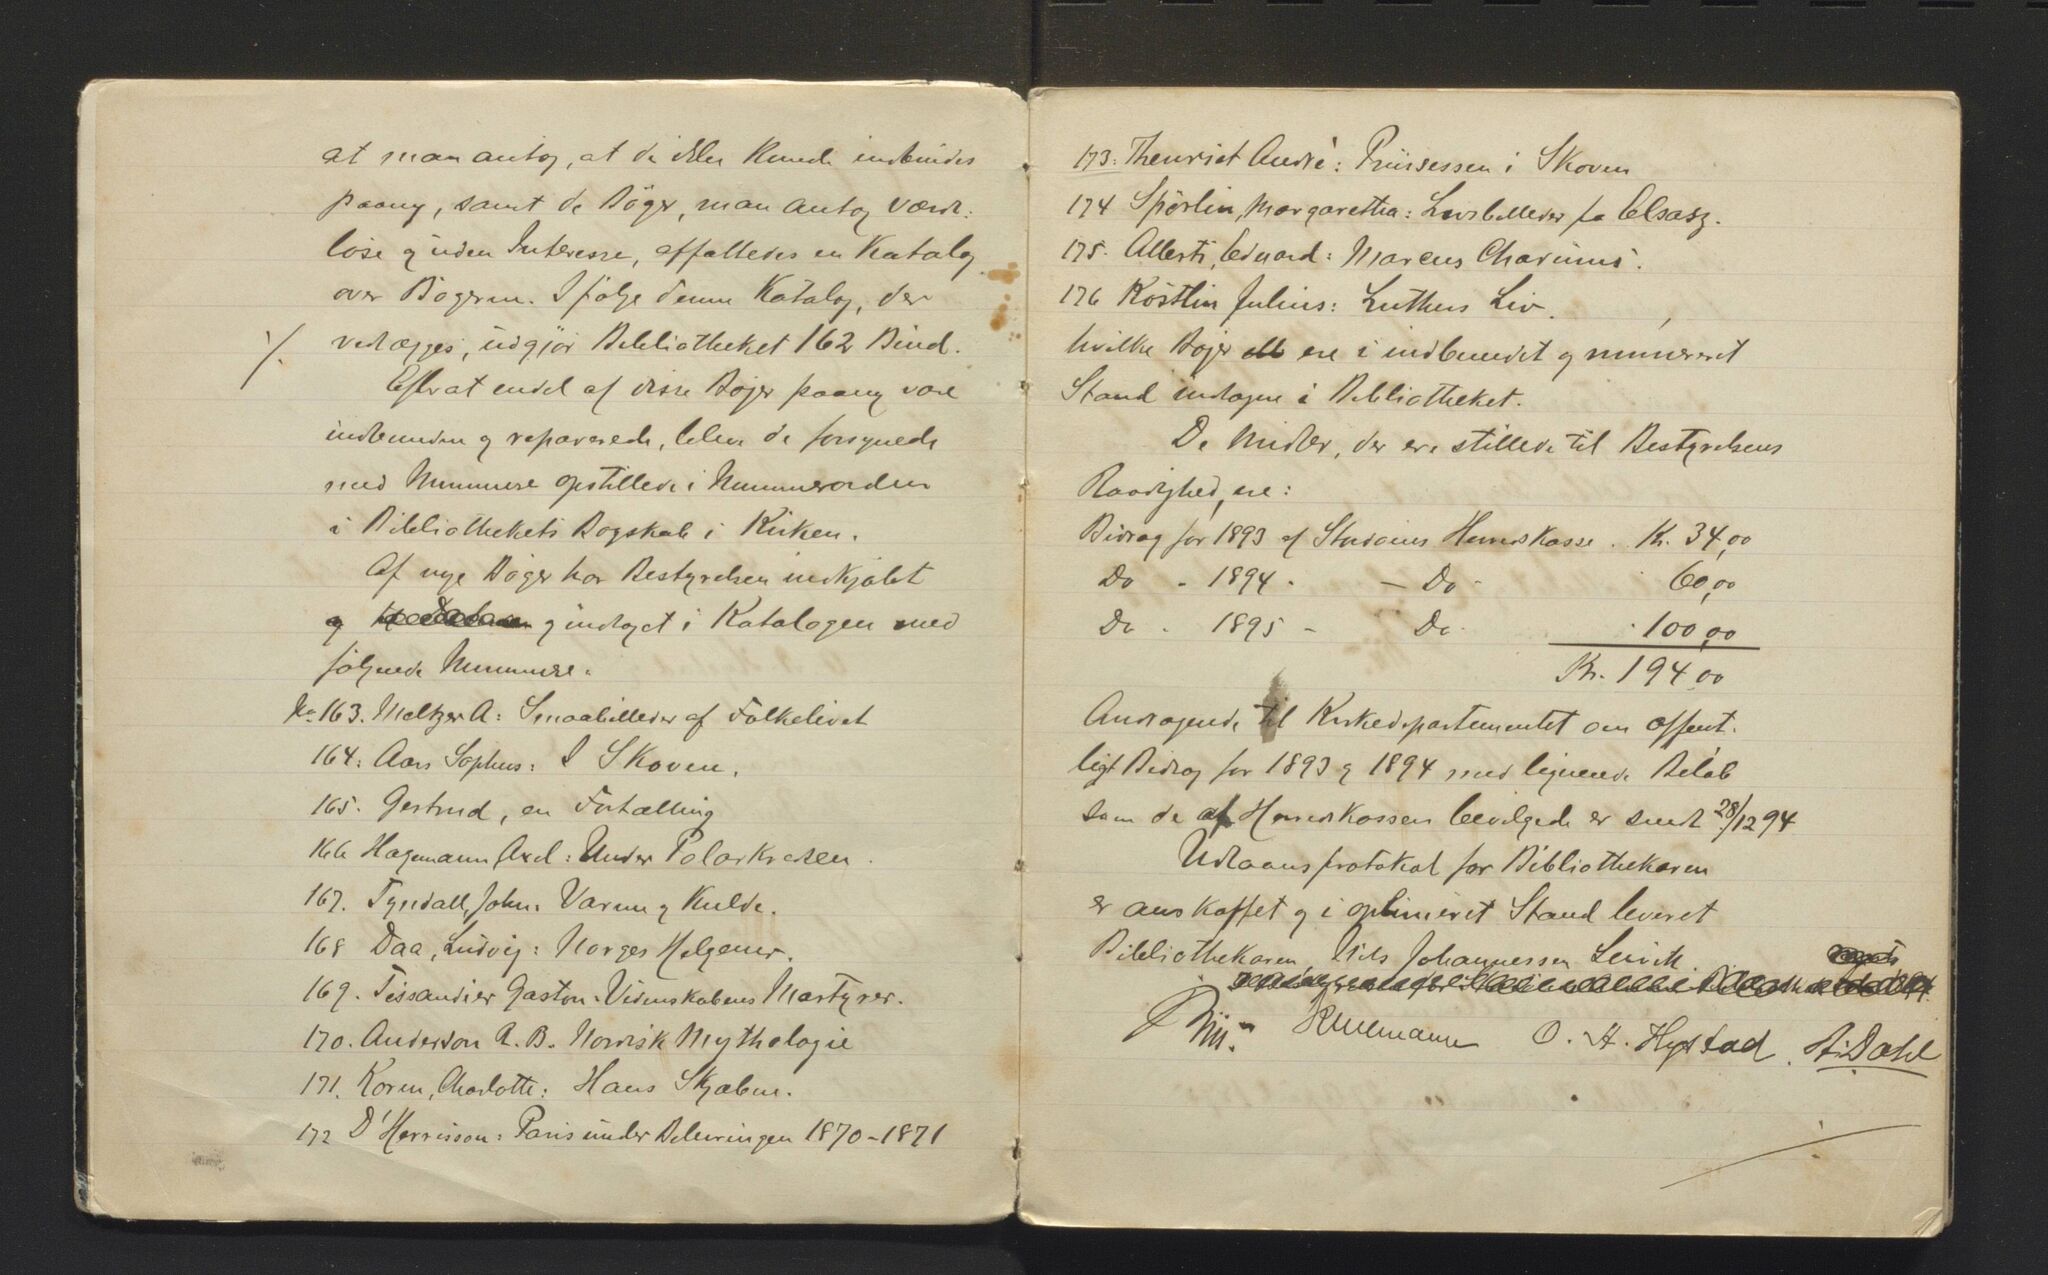 at man antog, at de ikke kunde indbindes
paany, samt de Bøger, man antog værd-
løse og uden Interesse, affattedes en Katalog
over Bøgerne. Ifølge denne Katalog, der
·/. vedlægges, udgjør Bibliotheket 162 Bind.
Efterat endel af disse Bøger paany vare
indbundne og reparerede, bleve de forsynede
med Nummere opstillede i Nummerorden
i Bibliothekets Bogskab i Kirken.
Af nye Bøger har Bestyrelsen indkjøbt
og og indtaget i Katalogen med
følgende Nummere.
No 163. Meltzer A: Smaabilleder af Folkelivet
164: Aars Sophus: I Skoven.
165. Gertrud, en Fortælling
166 Hagemann Axel: Under Polarkredsen.
167. Tyndall, John: Varme og Kulde.
168 Daa, Ludvig: Norges Helgener.
169. Tissandier Gaston: Videnskabens Martyrer.
170. Anderson R. B. Norrisk Mythologie
171. Koren, Charlotte: Hans Skjæbne.
172 D'Herrisson: Paris under Beleiringen 1870-1871
173: Theuriet André: Prinsessen i Skoven
174 Spörlin, Margaretha: Livsbilleder fra Elsasz.
175. Alberti, Eduard: Marcus Charinus.
176 Köstlin Julius: Luthers Liv.
hvilke Bøger alle ere i indbundet og numereret
Stand indtagne i Bibliotheket.
De Midler, der ere stillede til Bestyrelsens
Raadighed, ere:
Bidrag for 1893 af Stordøens Herredskasse . Kr. 34,00
Do - 1894 - — Do - 60,00
Do - 1895 - Do - 100,00
Kr. 194,00
Andragende til Kirkedepartementet om offent-
ligt Bidrag for 1893 og 1894 med lignende Beløb
som de af Herredskassen bevilgede er sendt 28/12 94
Udlaansprotokol for Bibliothekaren
er anskaffet og i oplinieret Stand leveret
Bibliothekaren Nils Johannessen Leirvik.
Kullmann O. H. Hystad. A. Dahl